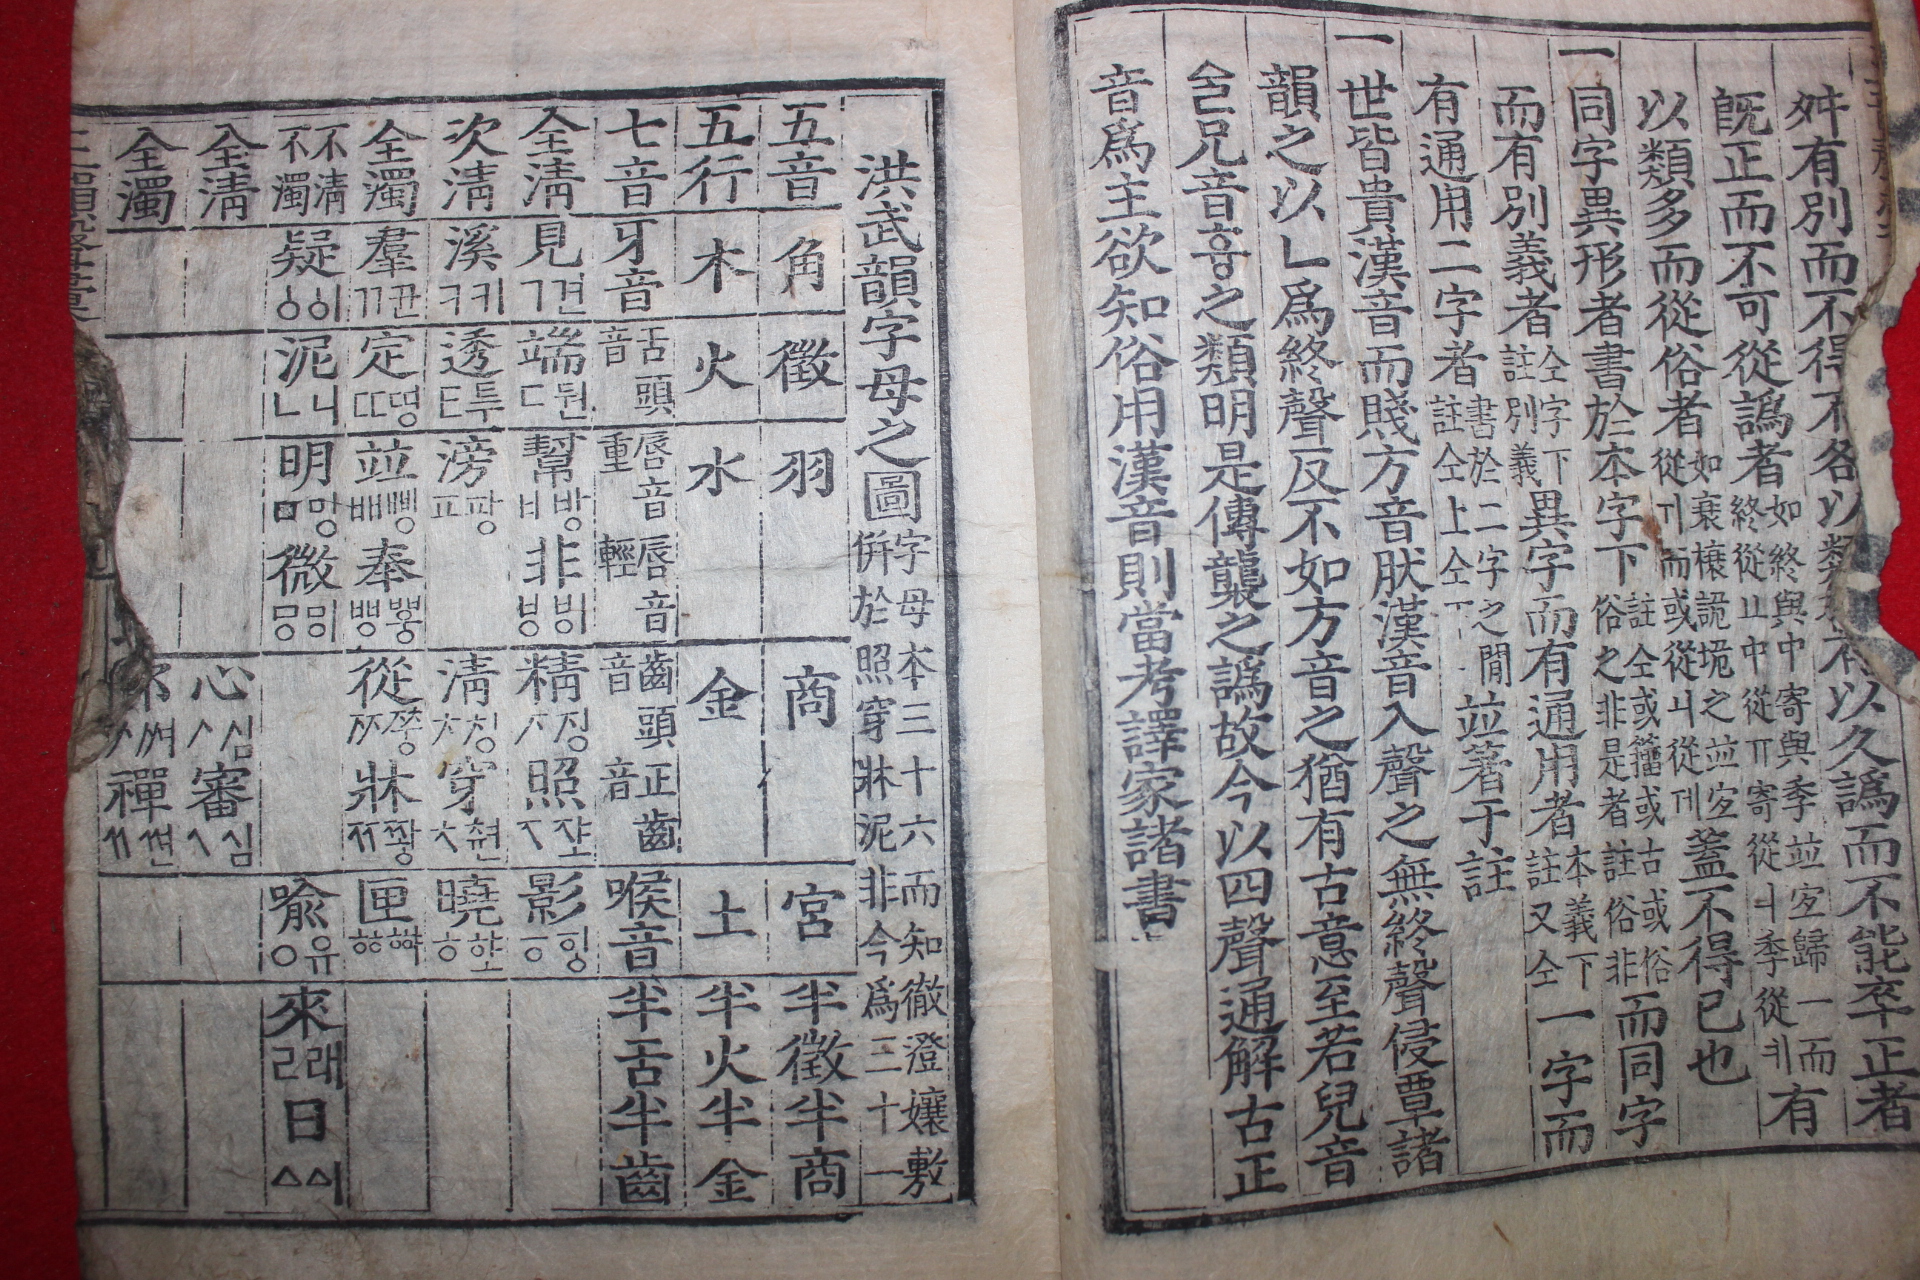 舛有別而不得不各以類以久譌而不能卒正者
旣正而不可從譌者如終與中寄與季並宐歸一而終從ㅛ中從ㅠ寄從季從有
以類多而從俗者如詭垝之並宐從而或從從蓋不得已也
一同字異形者書於本字下註仝或籒或古或俗俗之非是者註俗非而同字
而有別義者仝字下註別義異字而有通用者本義下註又仝一字而
有通用二字者書於二字之閒註仝上仝下並著于註
一世皆貴漢音而賤方音肰漢音入聲之無終聲侵覃諸
韻之以ㄴ爲終聲反不如方音之猶有古意至若兒音
兄音之類明是傳襲之譌故今以四聲通解古正
音爲主欲知俗用漢音則當考譯家諸書
洪武韻字母之圖字母本三十六而知徹澄孃敷倂於照穿牀泥非今爲三十一
五音 角 徵 羽 商 宮 半徵半商
五行 木 火 水 金 土 半火半金
七音 牙音 舌頭音 唇音重 唇音輕 齒頭音 正齒音 喉音 半舌半齒
全淸 見ㄱ견 端ㄷ둰 幫ㅂ방 非ㅸ 精ᅎ 照ᅐ 影ㆆ
次淸 溪ㅋ키 透ㅌ투 滂ㅍ팡 淸ᅔ 穿ᅕ 曉ㅎ
全濁 羣ㄲ뀬 定ㄸ띵 並ㅃ삥 奉ㅹ 從ᅏ 牀ᅑ 匣ㆅ
不淸不濁 疑ㆁ 泥ㄴ니 明ㅁ밍 微ㅱ 喩ㅇ유 來ㄹ래 日ㅿ
全淸 心ᄼ 審ᄾ
全濁 邪ᄽ 禪ᄿ